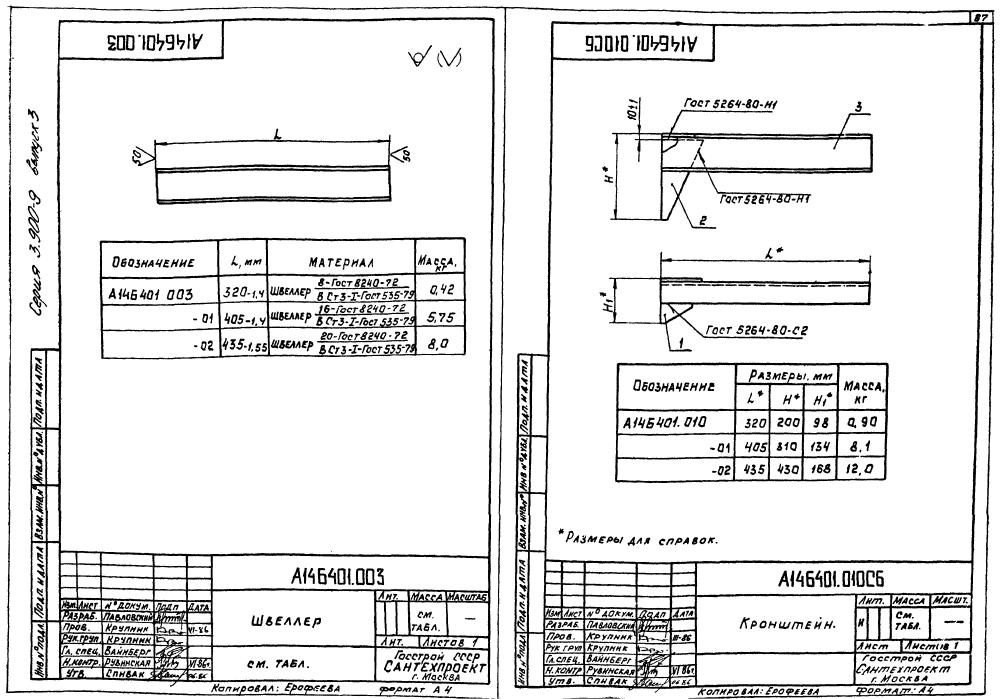 87
А14Б401.003
√ (√)
Серия 3.900-9 выпуск 3
L
50
50
Обозначение L, мм Материал Масса, кг
А14Б401 003 320-1,4 Швеллер 8-Гост 8240-72 / ВСт3-I-Гост 535-79 0,42
-01 405-1,4 Швеллер 16-Гост 8240-72 / ВСт3-I-Гост 535-79 5,75
-02 435-1,55 Швеллер 20-Гост 8240-72 / ВСт3-I-Гост 535-79 8,0
Инв.№ подл Подп. и дата Взам. инв.№ Инв.№ дубл. Подп. и дата
А14Б401.003
Изм Лист № докум. Подп Дата
Разраб. Павловский
Пров. Крупник VI-86
Рук.груп. Крупник
Гл. спец. Вайнберг
Н.контр. Рубинская VI 86г
Утв. Спивак
Швеллер
см. табл.
Лит. Масса Масштаб
см. табл. —
Лит. Листов 1
Госстрой СССР
Сантехпроект
г. Москва
Копировал: Ерофеева формат А4
А14Б401.010СБ
10±1
Гост 5264-80-Н1
3
H*
Гост 5264-80-Н1
2
L*
H1*
Гост 5264-80-С2
1
Обозначение Размеры, мм Масса, кг
L* H* H1*
А14Б401.010 320 200 98 0,90
-01 405 310 134 8,1
-02 435 430 168 12,0
*Размеры для справок.
Инв.№ подл Подп. и дата Взам. инв.№ Инв.№ дубл. Подп. и дата
А14Б401.010СБ
Изм Лист № докум. Подп Дата
Разраб. Павловский
Пров. Крупник
Рук груп Крупник
Гл.спец. Вайнберг
Н.контр Рубинская VI 86г
Утв. Спивак
Кронштейн.
Лит. Масса Масшт.
И см. табл. —
Лист Листов 1
Госстрой СССР
Сантехпроект
г. Москва
Копировал: Ерофеева Формат: А4